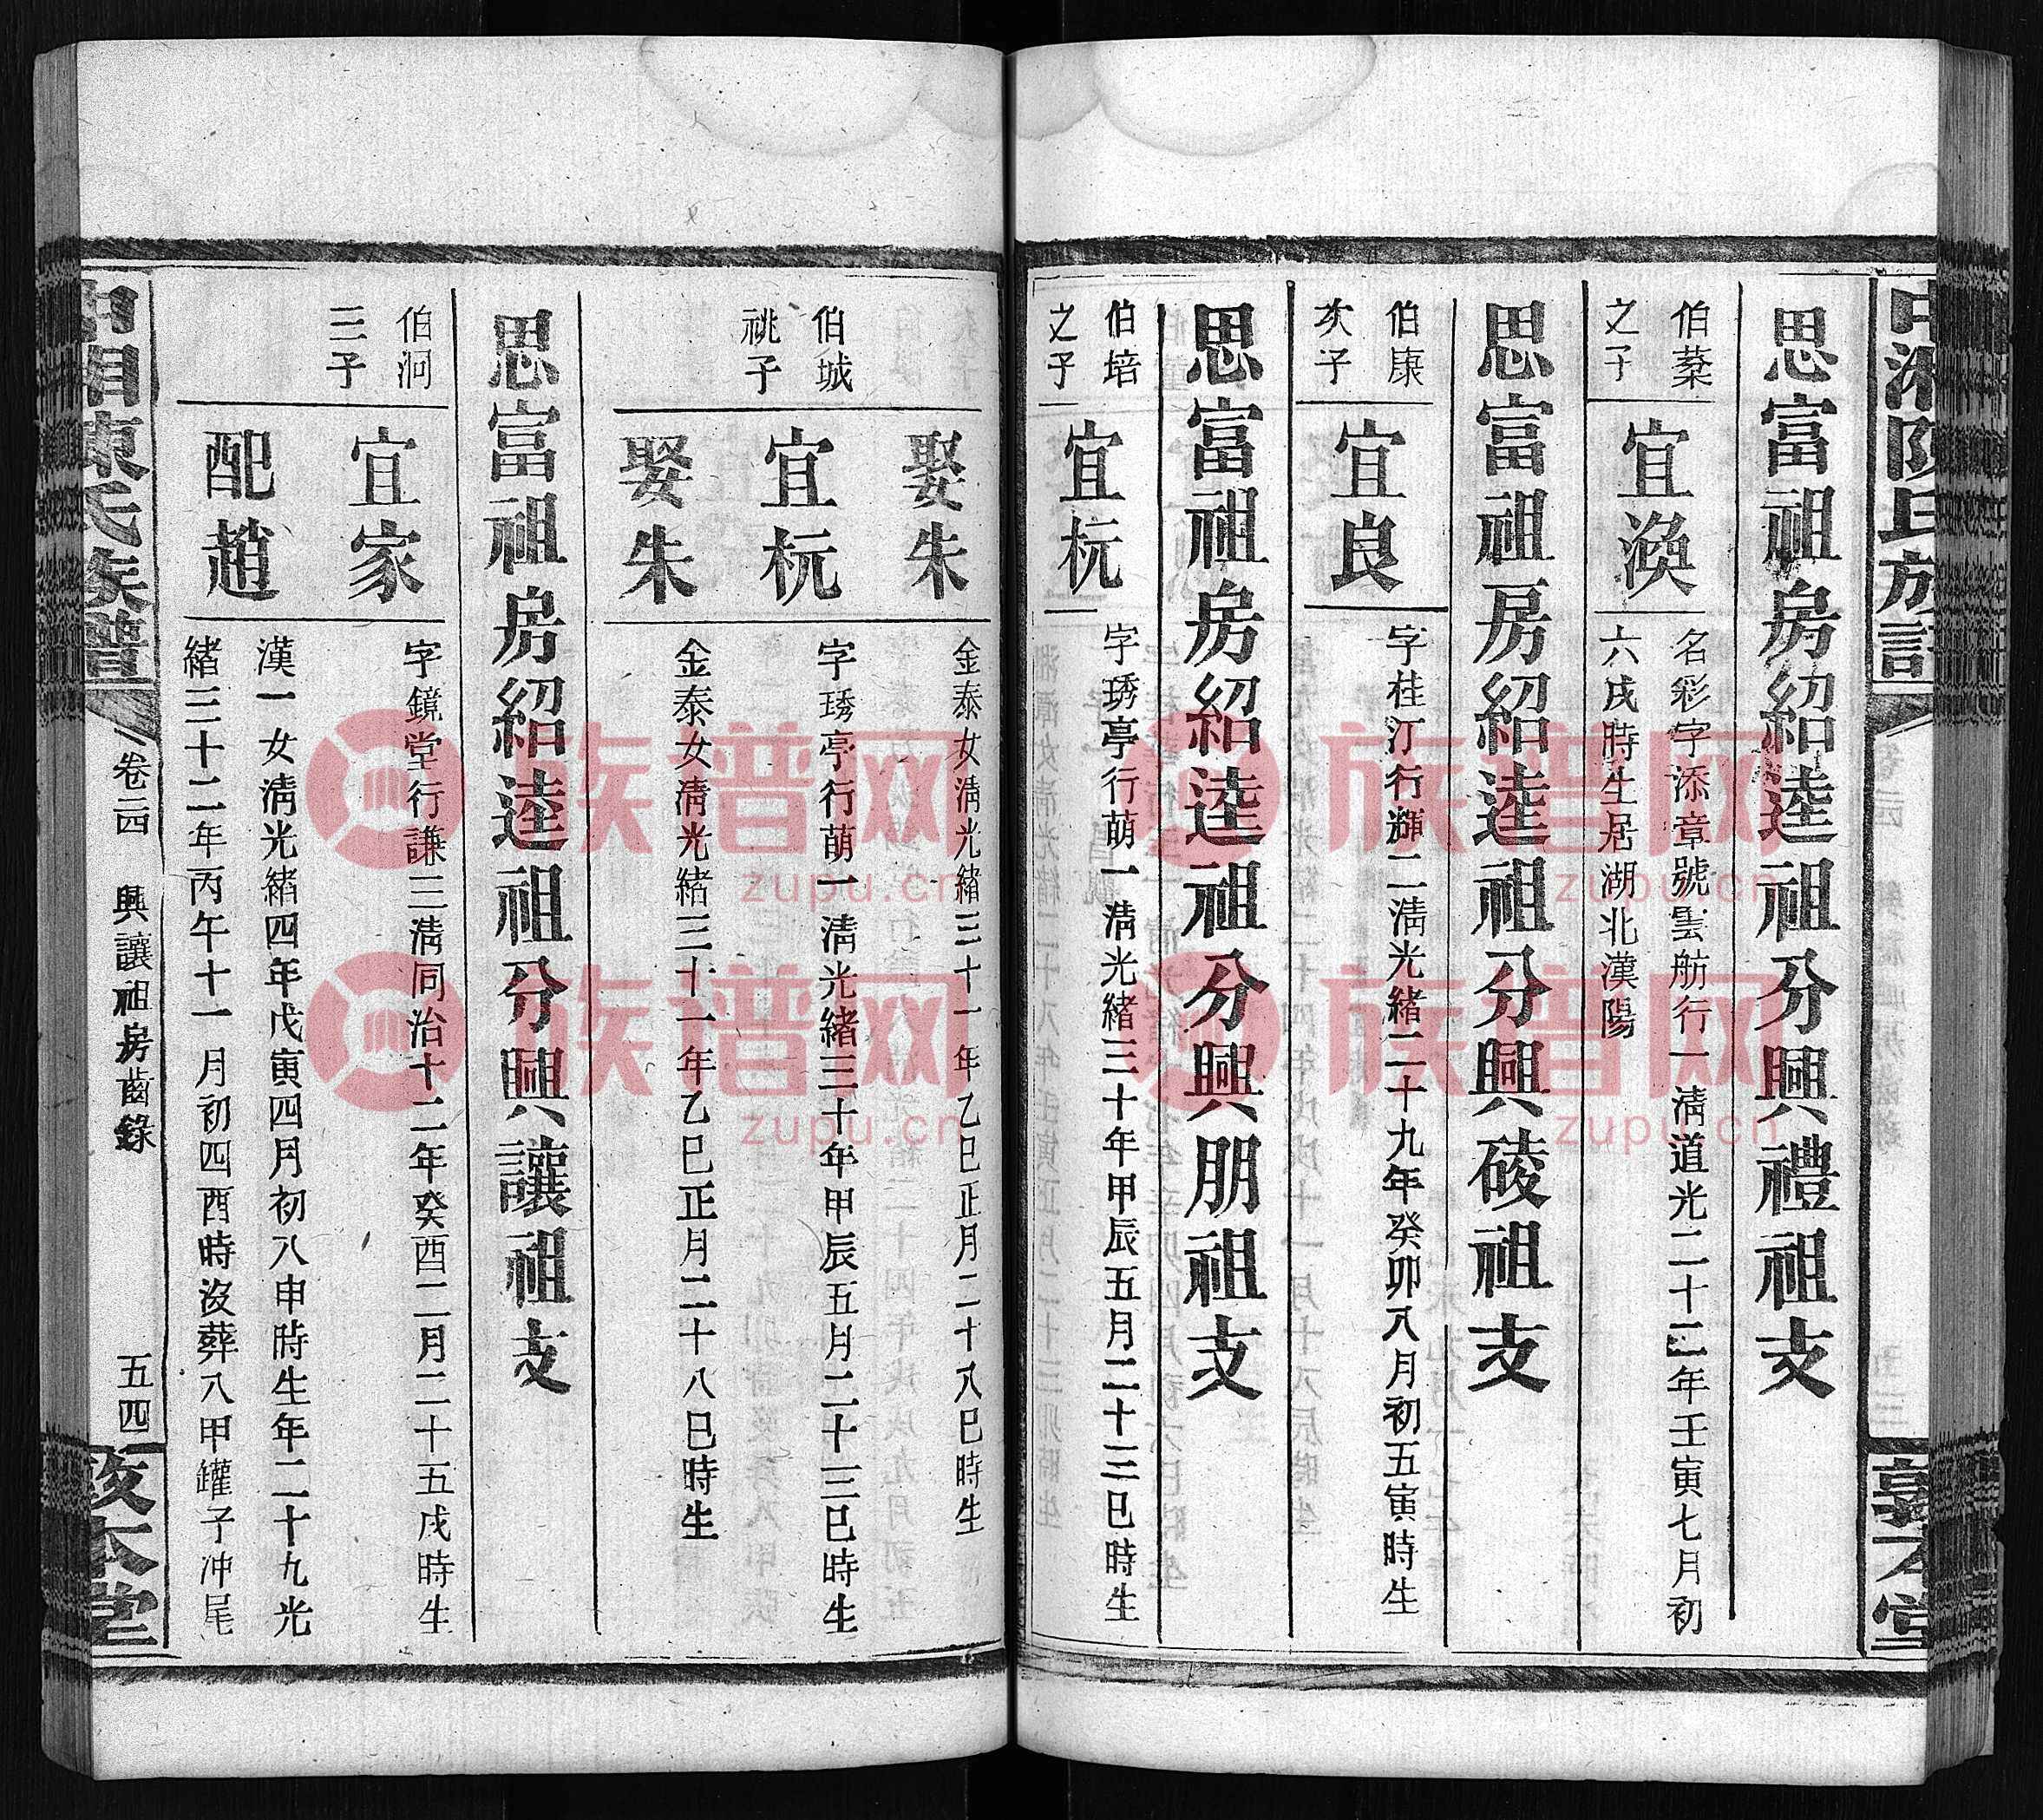 中湘陳氏族譜
敦本堂
思富祖房紹逵祖分興禮祖支
伯棻
之子
宜渙
名彩字添章號雲舫行一清道光二十二年壬寅七月初
六戌時生居湖北漢陽
思富祖房紹逵祖分興碐祖支
伯康
次子
宜良
字桂汀行輝二清光緒二十九年癸卯八月初五寅時生
思富祖房紹逵祖分興朋祖支
伯培
之子
宜杬
字琇亭行萌一清光緒三十年甲辰五月二十三巳時生
娶朱
金泰女清光緒三十一年乙巳正月二十八巳時生
伯城
祧子
宜杬
字琇亭行萌一清光緒三十年甲辰五月二十三巳時生
娶朱
金泰女清光緒三十一年乙巳正月二十八巳時生
思富祖房紹逵祖分興讓祖支
伯泂
三子
宜家
字鏡堂行謙三清同治十二年癸酉二月二十五戌時生
配趙
漢一女清光緒四年戊寅四月初八申時生年二十九光
緒三十二年丙午十一月初四酉時沒葬八甲鑵子沖尾
中湘陳氏族譜
卷二四 興讓祖房齒錄
五四
敦本堂
族谱网
zupu.cn
族谱网
zupu.cn
族谱网
zupu.cn
族谱网
zupu.cn